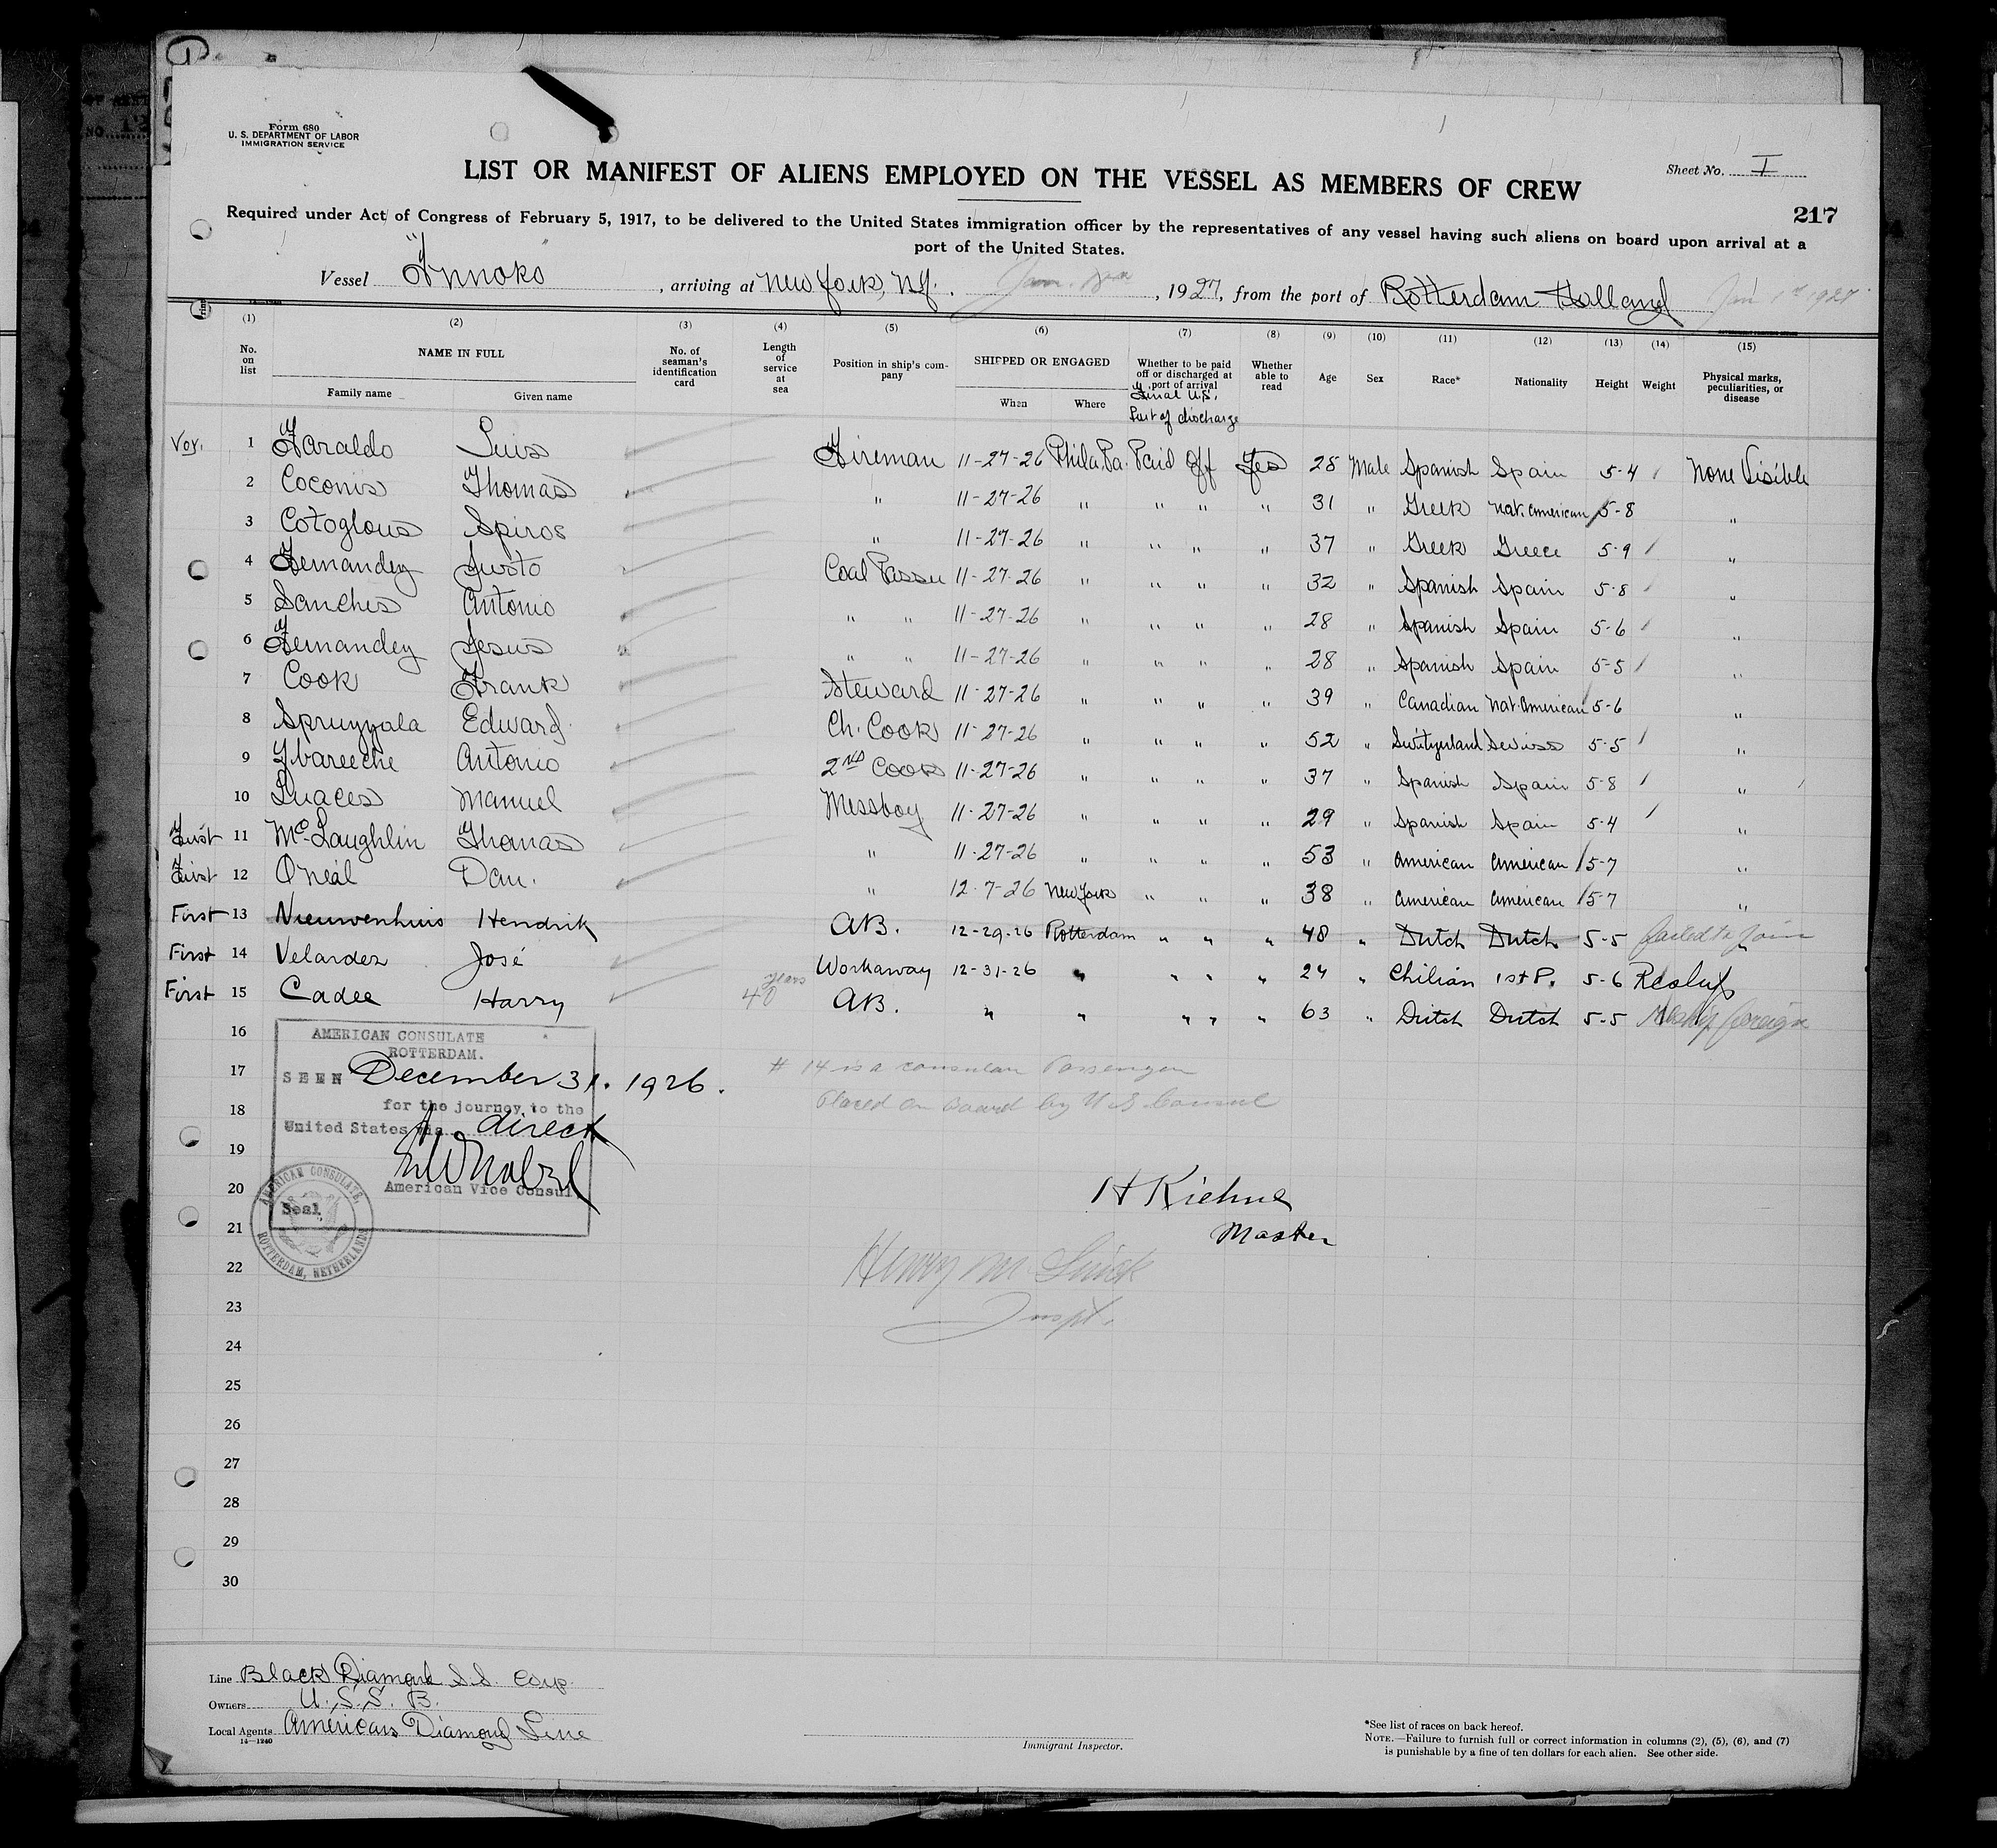 Form 680
U. S. DEPARTMENT OF LABOR
IMMIGRATION SERVICE
LIST OR MANIFEST OF ALIENS EMPLOYED ON THE VESSEL AS MEMBERS OF CREW
Sheet No. I
217
Required under Act of Congress of February 5, 1917, to be delivered to the United States immigration officer by the representatives of any vessel having such aliens on board upon arrival at a
port of the United States.
Vessel "Innoko", arriving at New York, N.Y. Jan. 1927, from the port of Rotterdam Holland Jan 1st 1927
(1) (2) (3) (4) (5) (6) (7) (8) (9) (10) (11) (12) (13) (14) (15)
No. on list NAME IN FULL No. of seaman's identification card Length of service at sea Position in ship's company SHIPPED OR ENGAGED Whether to be paid off or discharged at port of arrival Whether able to read Age Sex Race* Nationality Height Weight Physical marks, peculiarities, or disease
Family name Given name When Where Final U.S. Port of discharge
Voy. 1 Faraldo Luis Fireman 11-27-26 Phila. Pa. Paid Off Yes 28 Male Spanish Spain 5-4 None Visible
2 Coconis Thomas " 11-27-26 " " " " 31 " Greek Nat. American 5-8 "
3 Cotoglous Spiros " 11-27-26 " " " " 37 " Greek Greece 5-9 "
4 Fernandez Justo Coal Passer 11-27-26 " " " " 32 " Spanish Spain 5-8 "
5 Sanches Antonio " " 11-27-26 " " " " 28 " Spanish Spain 5-6 "
6 Fernandez Jesus " " 11-27-26 " " " " 28 " Spanish Spain 5-5 "
7 Cook Frank Steward 11-27-26 " " " " 39 " Canadian Nat. American 5-6 "
8 Spruzzala Edward Ch. Cook 11-27-26 " " " " 52 " Switzerland Swiss 5-5 "
9 Ybareeche Antonio 2ND Cook 11-27-26 " " " " 37 " Spanish Spain 5-8 "
10 Luaces Manuel Messboy 11-27-26 " " " " 29 " Spanish Spain 5-4 "
First 11 McLaughlin Thomas " 11-27-26 " " " " 53 " American American 5-7 "
First 12 O'neal Dan. " 12-7-26 New York " " " 38 " American American 5-7 "
First 13 Nieuwenhuis Hendrik AB. 12-29-26 Rotterdam " " " 48 " Dutch Dutch 5-5 failed to join
First 14 Velardez José Workaway 12-31-26 " " " " 24 " Chilian 5-6
First 15 Cadee Harry 40 years AB. " " " " " 63 " Dutch Dutch 5-5 Reship foreign
16
AMERICAN CONSULATE
ROTTERDAM.
17 SEEN December 31. 1926.
# 14 is a consular Passenger
18 for the journey to the
Placed on board by U S Consul
United States via direct
19
20 American Vice Consul.
Seal
AMERICAN CONSULATE, ROTTERDAM, NETHERLANDS
H Kiehne
Master
21
22
Henry M
Inspt.
23
24
25
26
27
28
29
30
Line Black Diamond S.S. Corp.
Owners U. S. S. B.
Local Agents American Diamond Line
14—1240
Immigrant Inspector.
*See list of races on back hereof.
NOTE.—Failure to furnish full or correct information in columns (2), (5), (6), and (7)
is punishable by a fine of ten dollars for each alien. See other side.